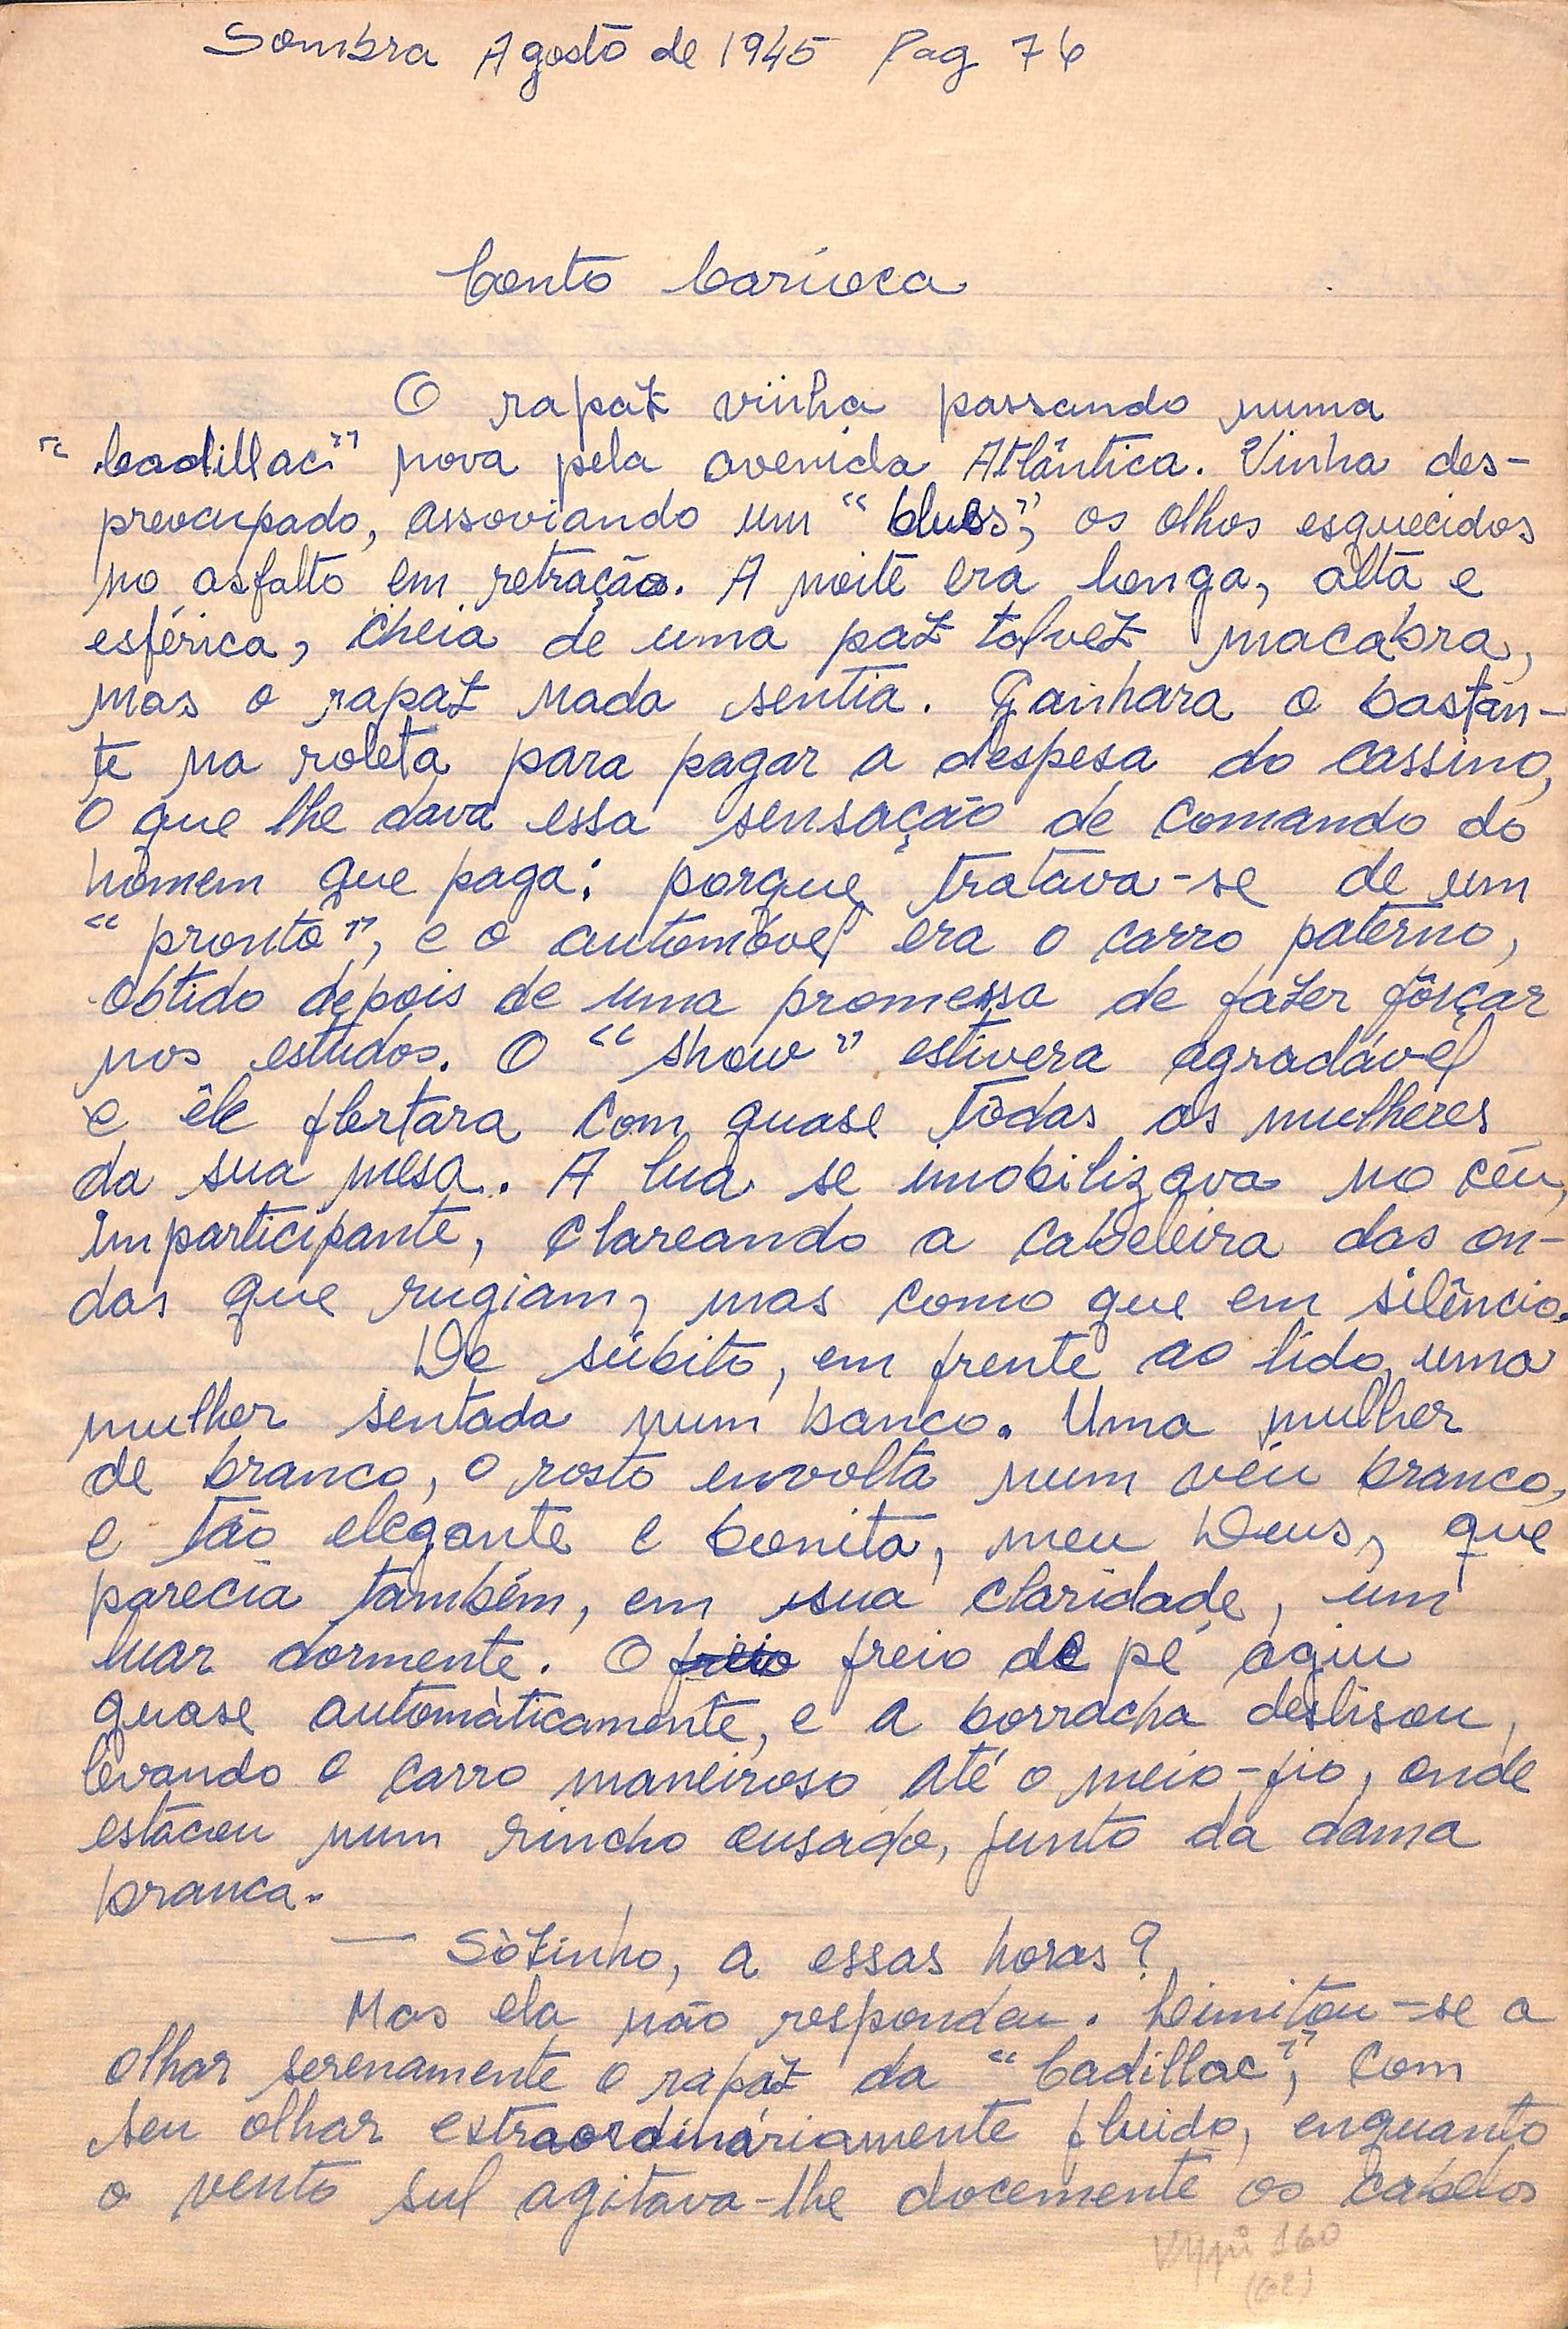 Sombra Agosto de 1945 Pag 76
Conto Carioca
O rapaz vinha passando numa
"Cadillac" nova pela avenida Atlântica. Vinha des-
preocupado, assoviando um "blues", os olhos esquecidos
no asfalto em retração. A noite era longa, alta e
esférica, cheia de uma paz talvez macabra,
mas o rapaz nada sentia. Ganhara o bastan-
te na roleta para pagar a despesa do cassino,
o que lhe dava essa sensação de comando do
homem que paga: porque tratava-se de um
"pronto", e o automóvel era o carro paterno,
obtido depois de uma promessa de fazer fôrçar
nos estudos. O "show" estivera agradável
e êle flertara com quase tôdas as mulheres
da sua mesa. A lua se imobilizava no céu,
imparticipante, clareando a cabeleira das on-
das que rugiam, mas como que em silêncio.
De súbito, em frente ao lido, uma
mulher sentada num banco. Uma mulher
de branco, o rosto envolta num véu branco,
e tão elegante e bonita, meu Deus, que
parecia também, em sua claridade, um
luar dormente. O freio freio de pé agiu
quase automàticamente, e a borracha deslisou,
levando o carro maneiroso até o meio-fio, onde
estacou num rincho ousado, junto da dama
branca.
— Sòzinho, a essas horas?
Mas ela não respondeu. Limitou-se a
olhar serenamente o rapaz da "Cadillac", com
seu olhar extraordinàriamente fluido, enquanto
o vento sul agitava-lhe docemente os cabelos
160
(62)